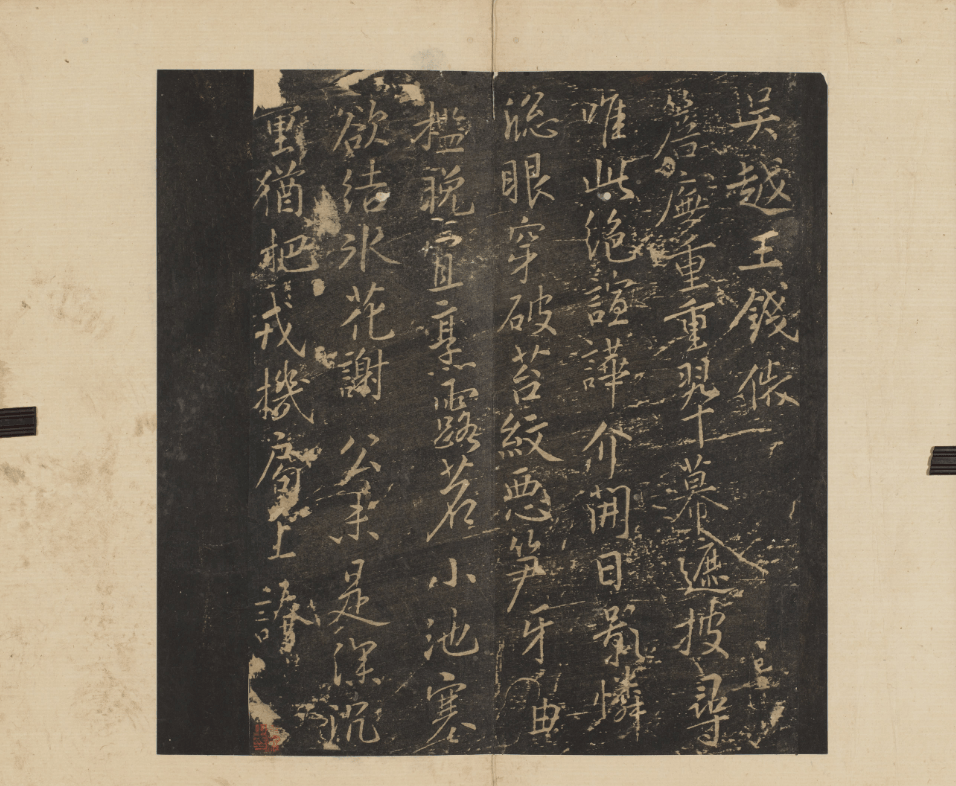 吳越王錢俶
簷廡重重翠幕遮披尋
唯此絶諠譁介開日影憐
窓眼穿破苔紋惡笋牙曲
檻晚宜烹露茗小池寒
欲結氷花謝公未是深沉
量猶把戎機局上誇